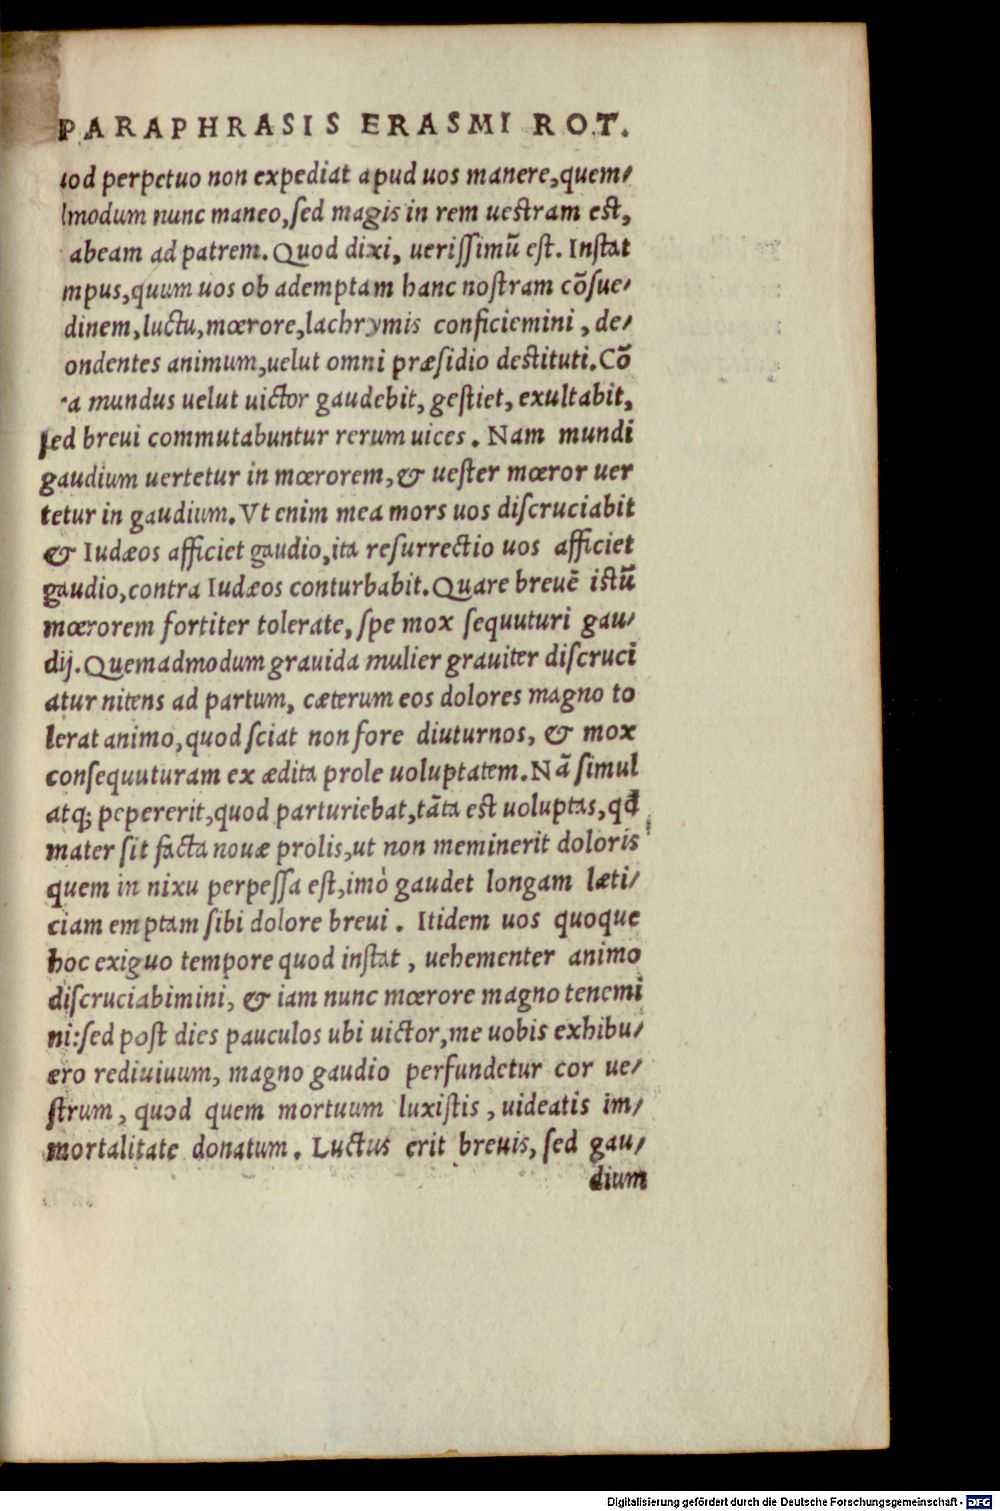 PARAPHRASIS ERASMI ROT.
uod perpetuo non expediat apud uos manere,quem/
modum nunc maneo,ſed magis in rem ueſtram eſt,
abeam ad patrem. Quod dixi, ueriſſimū eſt. Inſtat
mpus,quum uos ob ademptam hanc noſtram cōſue/
dinem,luctu,mœrore,lachrymis conficiemini, de/
ondentes animum,uelut omni præſidio deſtituti.Cō
a mundus uelut uictor gaudebit, geſtiet, exultabit,
ſed breui commutabuntur rerum uices. Nam mundi
gaudium uertetur in mœrorem,& ueſter mœror uer
tetur in gaudium. Vt enim mea mors uos diſcruciabit
& Iudæos afficiet gaudio,ita reſurrectio uos afficiet
gaudio,contra Iudæos conturbabit. Quare breuē iſtū
mœrorem fortiter tolerate, ſpe mox ſequuturi gau/
dij. Quemadmodum grauida mulier grauiter diſcruci
atur nitens ad partum, cæterum eos dolores magno to
lerat animo,quod ſciat non fore diuturnos, & mox
conſequuturam ex ædita prole uoluptatem. Nā ſimul
atq; pepererit,quod parturiebat,tāta eſt uoluptas,qđ
mater ſit facta nouæ prolis,ut non meminerit doloris
quem in nixu perpeſſa eſt,imò gaudet longam læti/
ciam emptam ſibi dolore breui. Itidem uos quoque
hoc exiguo tempore quod inſtat, uehementer animo
diſcruciabimini, & iam nunc mœrore magno tenemi
ni:ſed poſt dies pauculos ubi uictor,me uobis exhibu/
ero rediuiuum, magno gaudio perfundetur cor ue/
ſtrum, quod quem mortuum luxiſtis, uideatis im/
mortalitate donatum. Luctus erit breuis, ſed gau/
dium
Digitalisierung gefördert durch die Deutsche Forschungsgemeinschaft - DFG